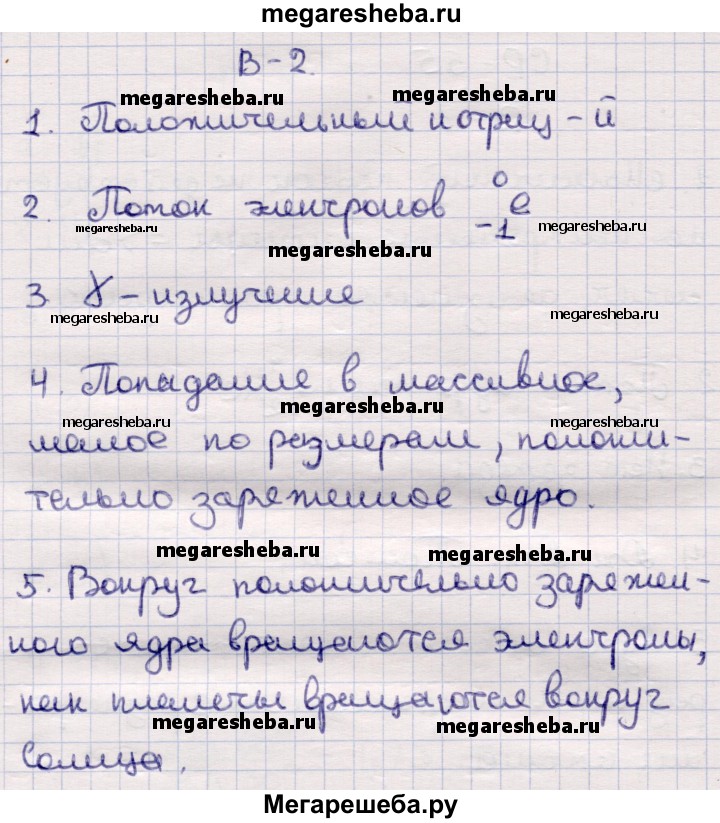 megaresheba.ru
В-2.
megaresheba.ru megaresheba.ru
1. Положительный и отриц-й
2. Поток электронов ⁰₋₁e
megaresheba.ru megaresheba.ru megaresheba.ru
3 γ - излучение
megaresheba.ru megaresheba.ru
4. Попадание в массивное,
megaresheba.ru megaresheba.ru megaresheba.ru
малое по размерам, положи-
тельно заряженное ядро.
megaresheba.ru megaresheba.ru
5. Вокруг положительно заряжен-
ного ядра вращаются электроны,
как планеты вращаются вокруг
megaresheba.ru megaresheba.ru
Солнца.
Мегарешеба.ру